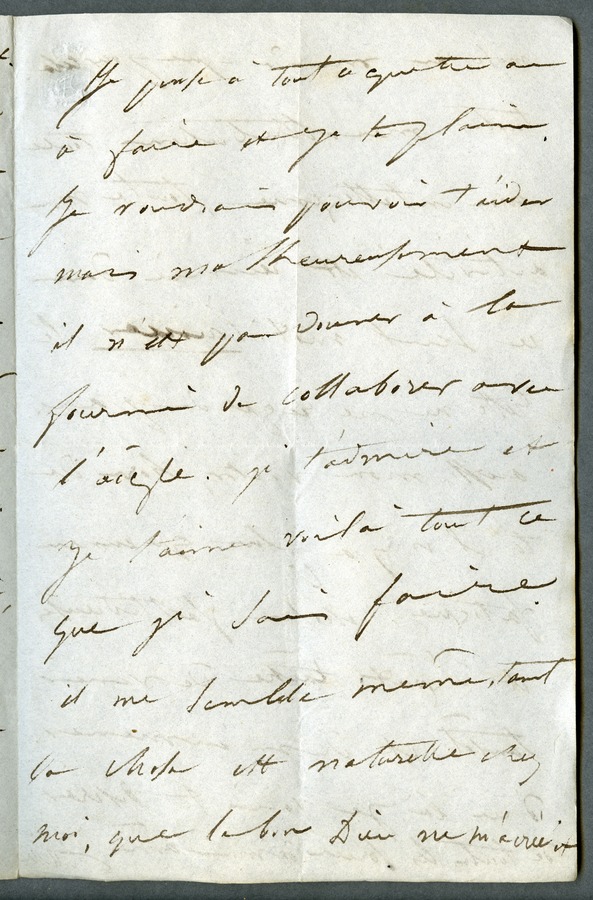 Je pense à tout ce que tu as
à faire et je te plains.
Je voudrais pouvoir t'aider
mais malheureusement
il n'est pas donner à la
fourmi de collaborer avec
l'aigle. je t'admire et
je t'aime voilà tout ce
que je sais faire.
il me semble même, tant
la chose est naturelle chez
moi, que le bon Dieu ne m'a créé et